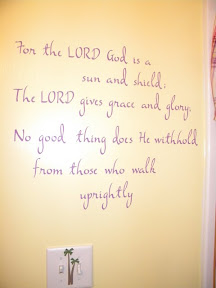 For the LORD God is a
sun and shield;
The LORD gives grace and glory;
No good thing does He withhold
from those who walk
uprightly